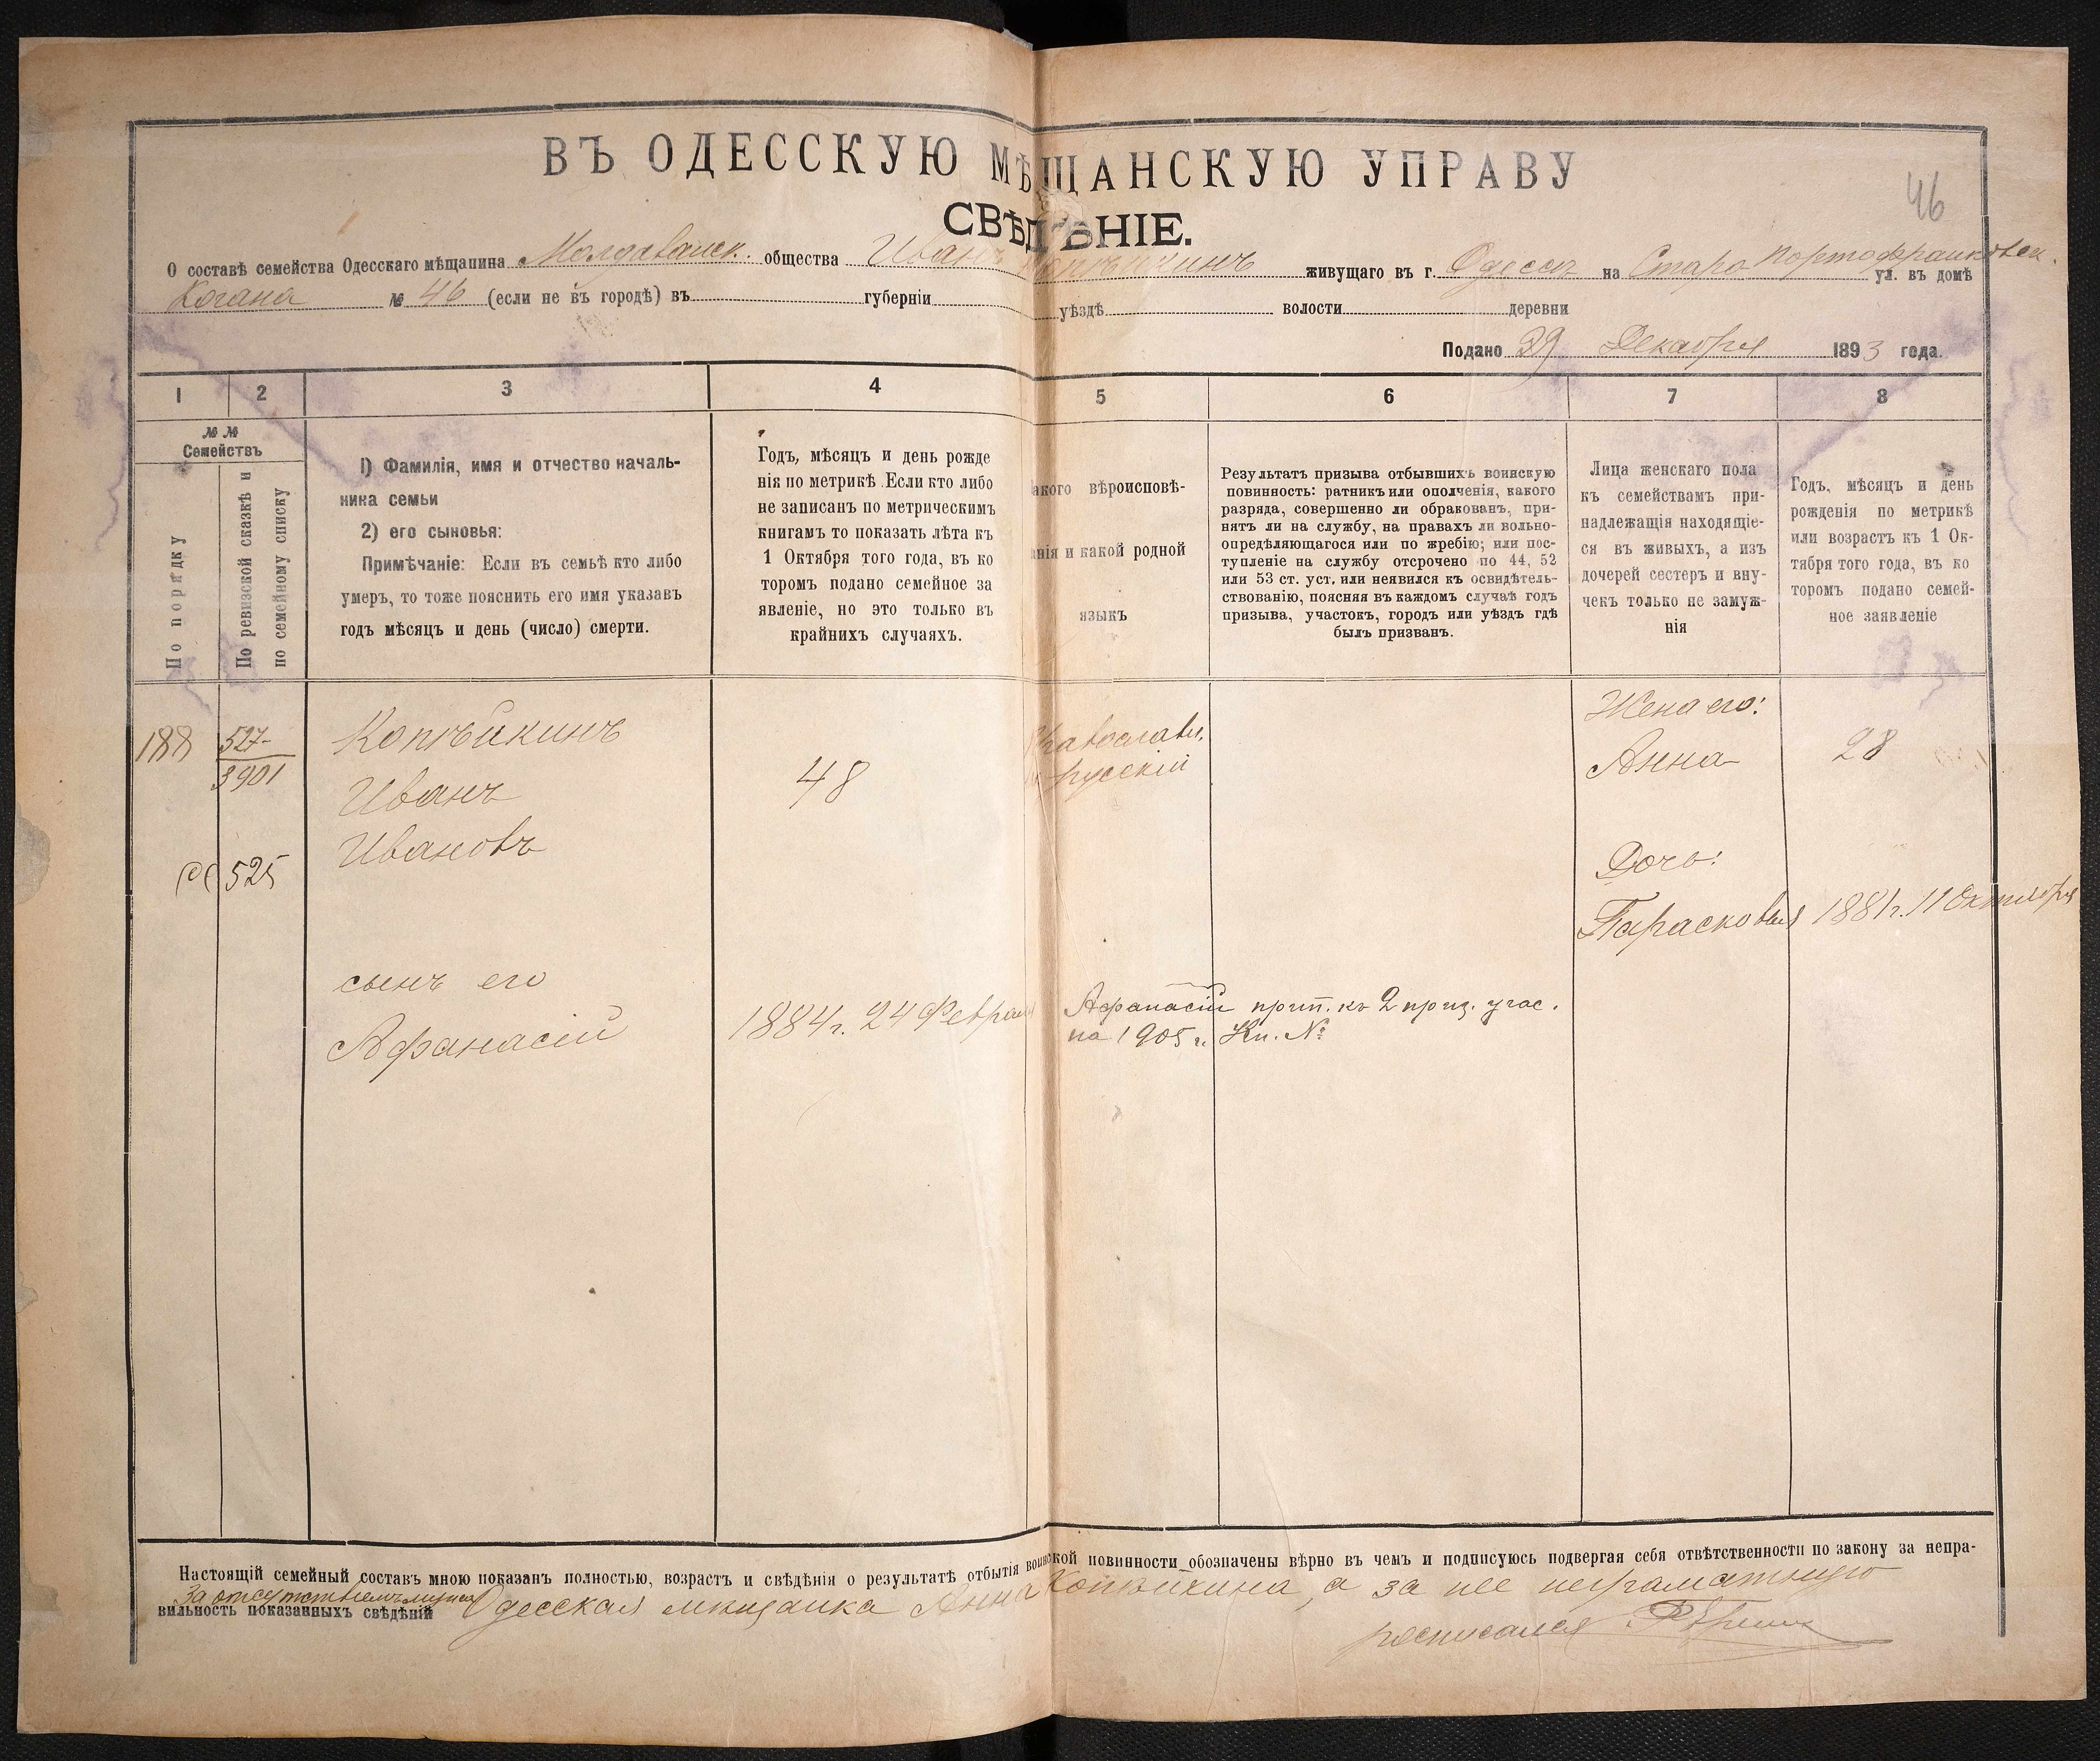 46
ВЪ ОДЕССКУЮ МѢЩАНСКУЮ УПРАВУ
СВѢДѢНІЕ.
О составѣ семейства Одесскаго мѣщанина Молдаванск. общества Иванъ Копѣйкинъ живущаго въ г. Одессѣ на Старо Портофранковск. ул. въ домѣ
Когана № 46 (если не въ городѣ) въ губерніи уѣздѣ волости деревни
Подано 29 Декабря 1893 года.
1 2 3 4 5 6 7 8
№ №
Семействъ
По порядку
По ревизской сказкѣ и
по семейному списку
1) Фамилія, имя и отчество началь-
ника семьи
2) его сыновья:
Примѣчаніе: Если въ семьѣ кто либо
умеръ, то тоже пояснить его имя указавъ
годъ мѣсяцъ и день (число) смерти.
Годъ, мѣсяцъ и день рожде
нія по метрикѣ Если кто либо
не записанъ по метрическимъ
книгамъ то показать лѣта къ
1 Октября того года, въ ко
торомъ подано семейное за
явленіе, но это только въ
крайнихъ случаяхъ.
акого вѣроисповѣ-
анія и какой родной
языкъ
Результатъ призыва отбывшихъ воинскую
повинность: ратникъ или ополченія, какого
разряда, совершенно ли обракованъ, при-
нятъ ли на службу, на правахъ ли вольно-
опредѣляющагося или по жребію; или пос-
тупленіе на службу отсрочено по 44, 52
или 53 ст. уст. или неявился къ освидѣтель-
ствованію, поясняя въ каждомъ случаѣ годъ
призыва, участокъ, городъ или уѣздъ гдѣ
былъ призванъ.
Лица женскаго пола
къ семействамъ при-
надлежащія находящіе-
ся въ живыхъ, а изъ
дочерей сестеръ и вну-
чекъ только не замуж-
нія
Годъ, мѣсяцъ и день
рожденія по метрикѣ
или возрастъ къ 1 Ок-
тября того года, въ ко
торомъ подано семей-
ное заявленіе
188
527
3901
525
Копѣйкинъ
Иванъ
Ивановъ
48
Православн.
русскій
Жена его:
Анна
28
Дочь:
Парасковья 1881г. 11 Октября
сынъ его
Афанасій
1884г. 24 Февраля
Афанасій прип. къ 2 приз. учас.
на 1905 г. Кн. №
Настоящій семейный составъ мною показанъ полностью, возрастъ и свѣдѣнія о результатѣ отбытія воинской повинности обозначены вѣрно въ чемъ и подписуюсь подвергая себя отвѣтственности по закону за непра-
вильность показанныхъ свѣдѣній За отсутствіемъ мужа Одесская мѣщанка Анна Копѣйкина, а за нее неграматную
росписался